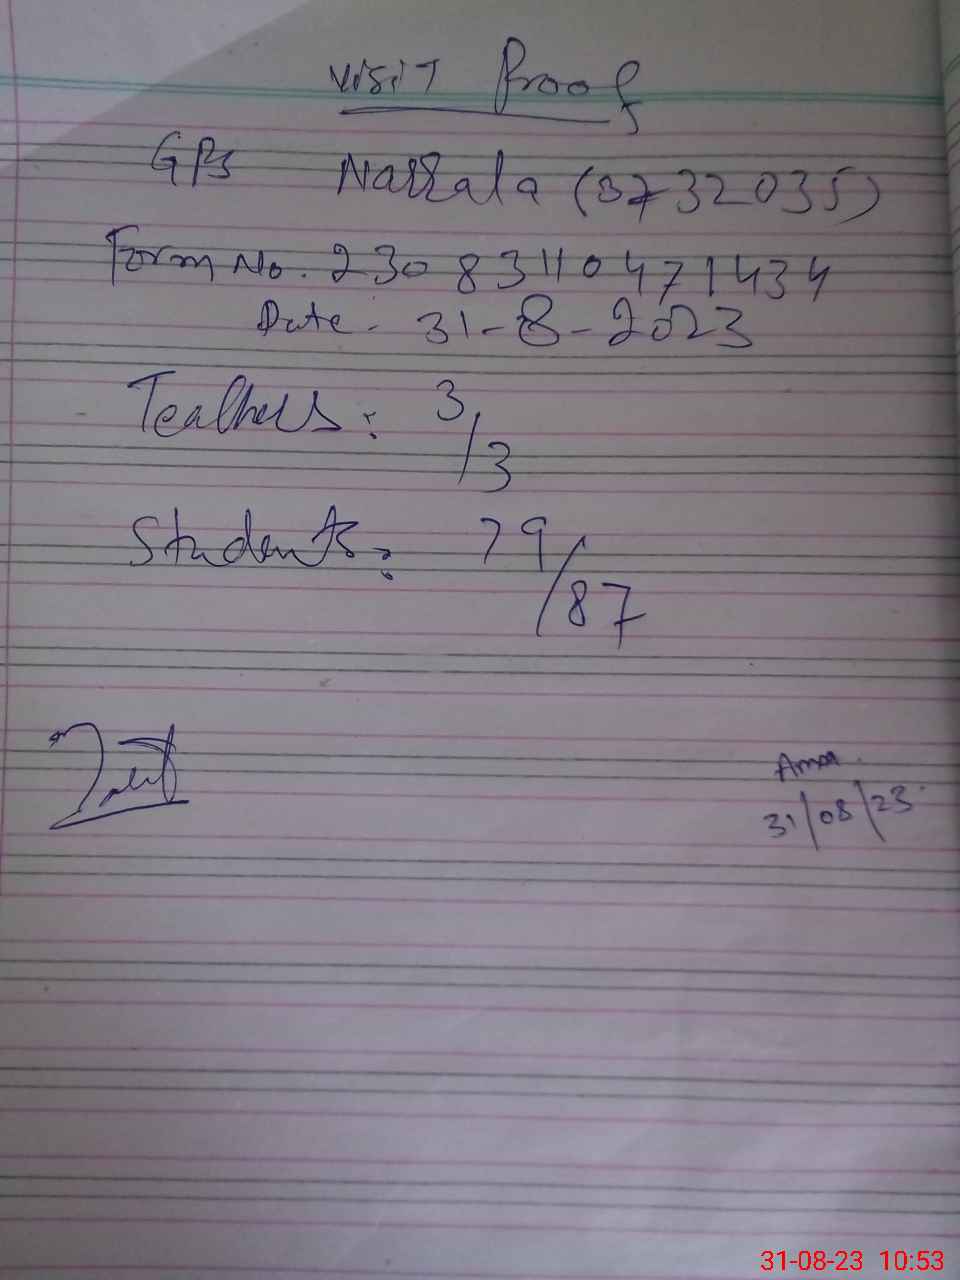 Visit Proof
GPS Narrala (3732035)
Form No. 23083110471434
Date - 31-8-2023
Teachers: 3/3
Students: 79/87
31/08/23
31-08-23 10:53